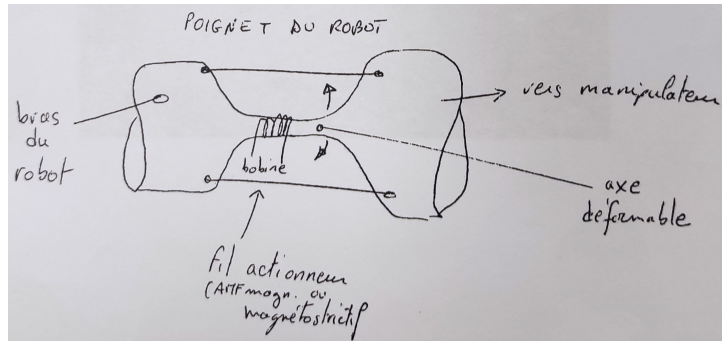 POIGNET DU ROBOT
bras
du
robot
vers manipulateur
bobine
axe
déformable
fil actionneur
(AMF magn. ou
magnétostrictif